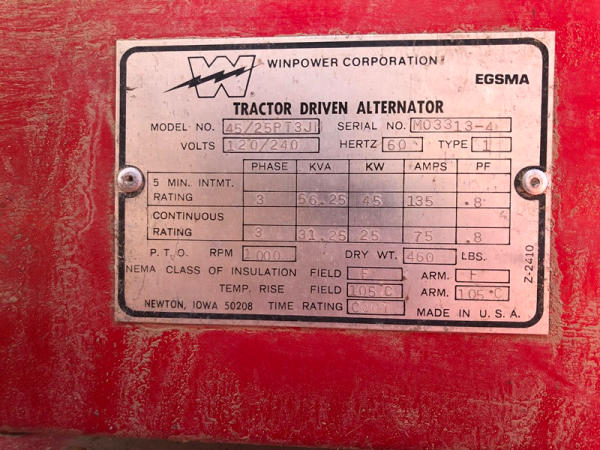 W
WINPOWER CORPORATION
EGSMA
TRACTOR DRIVEN ALTERNATOR
MODEL NO. 45/25PT3J SERIAL NO. M03313-4
VOLTS 120/240 HERTZ 60 TYPE 1
PHASE KVA KW AMPS PF
5 MIN. INTMT.
RATING 3 56.25 45 135 .8
CONTINUOUS
RATING 3 31.25 25 75 .8
P.T.O. RPM 1000 DRY WT. 460 LBS.
NEMA CLASS OF INSULATION FIELD F ARM. F
TEMP. RISE FIELD 105°C ARM. 105°C
NEWTON, IOWA 50208 TIME RATING CONT MADE IN U.S.A.
Z-2410